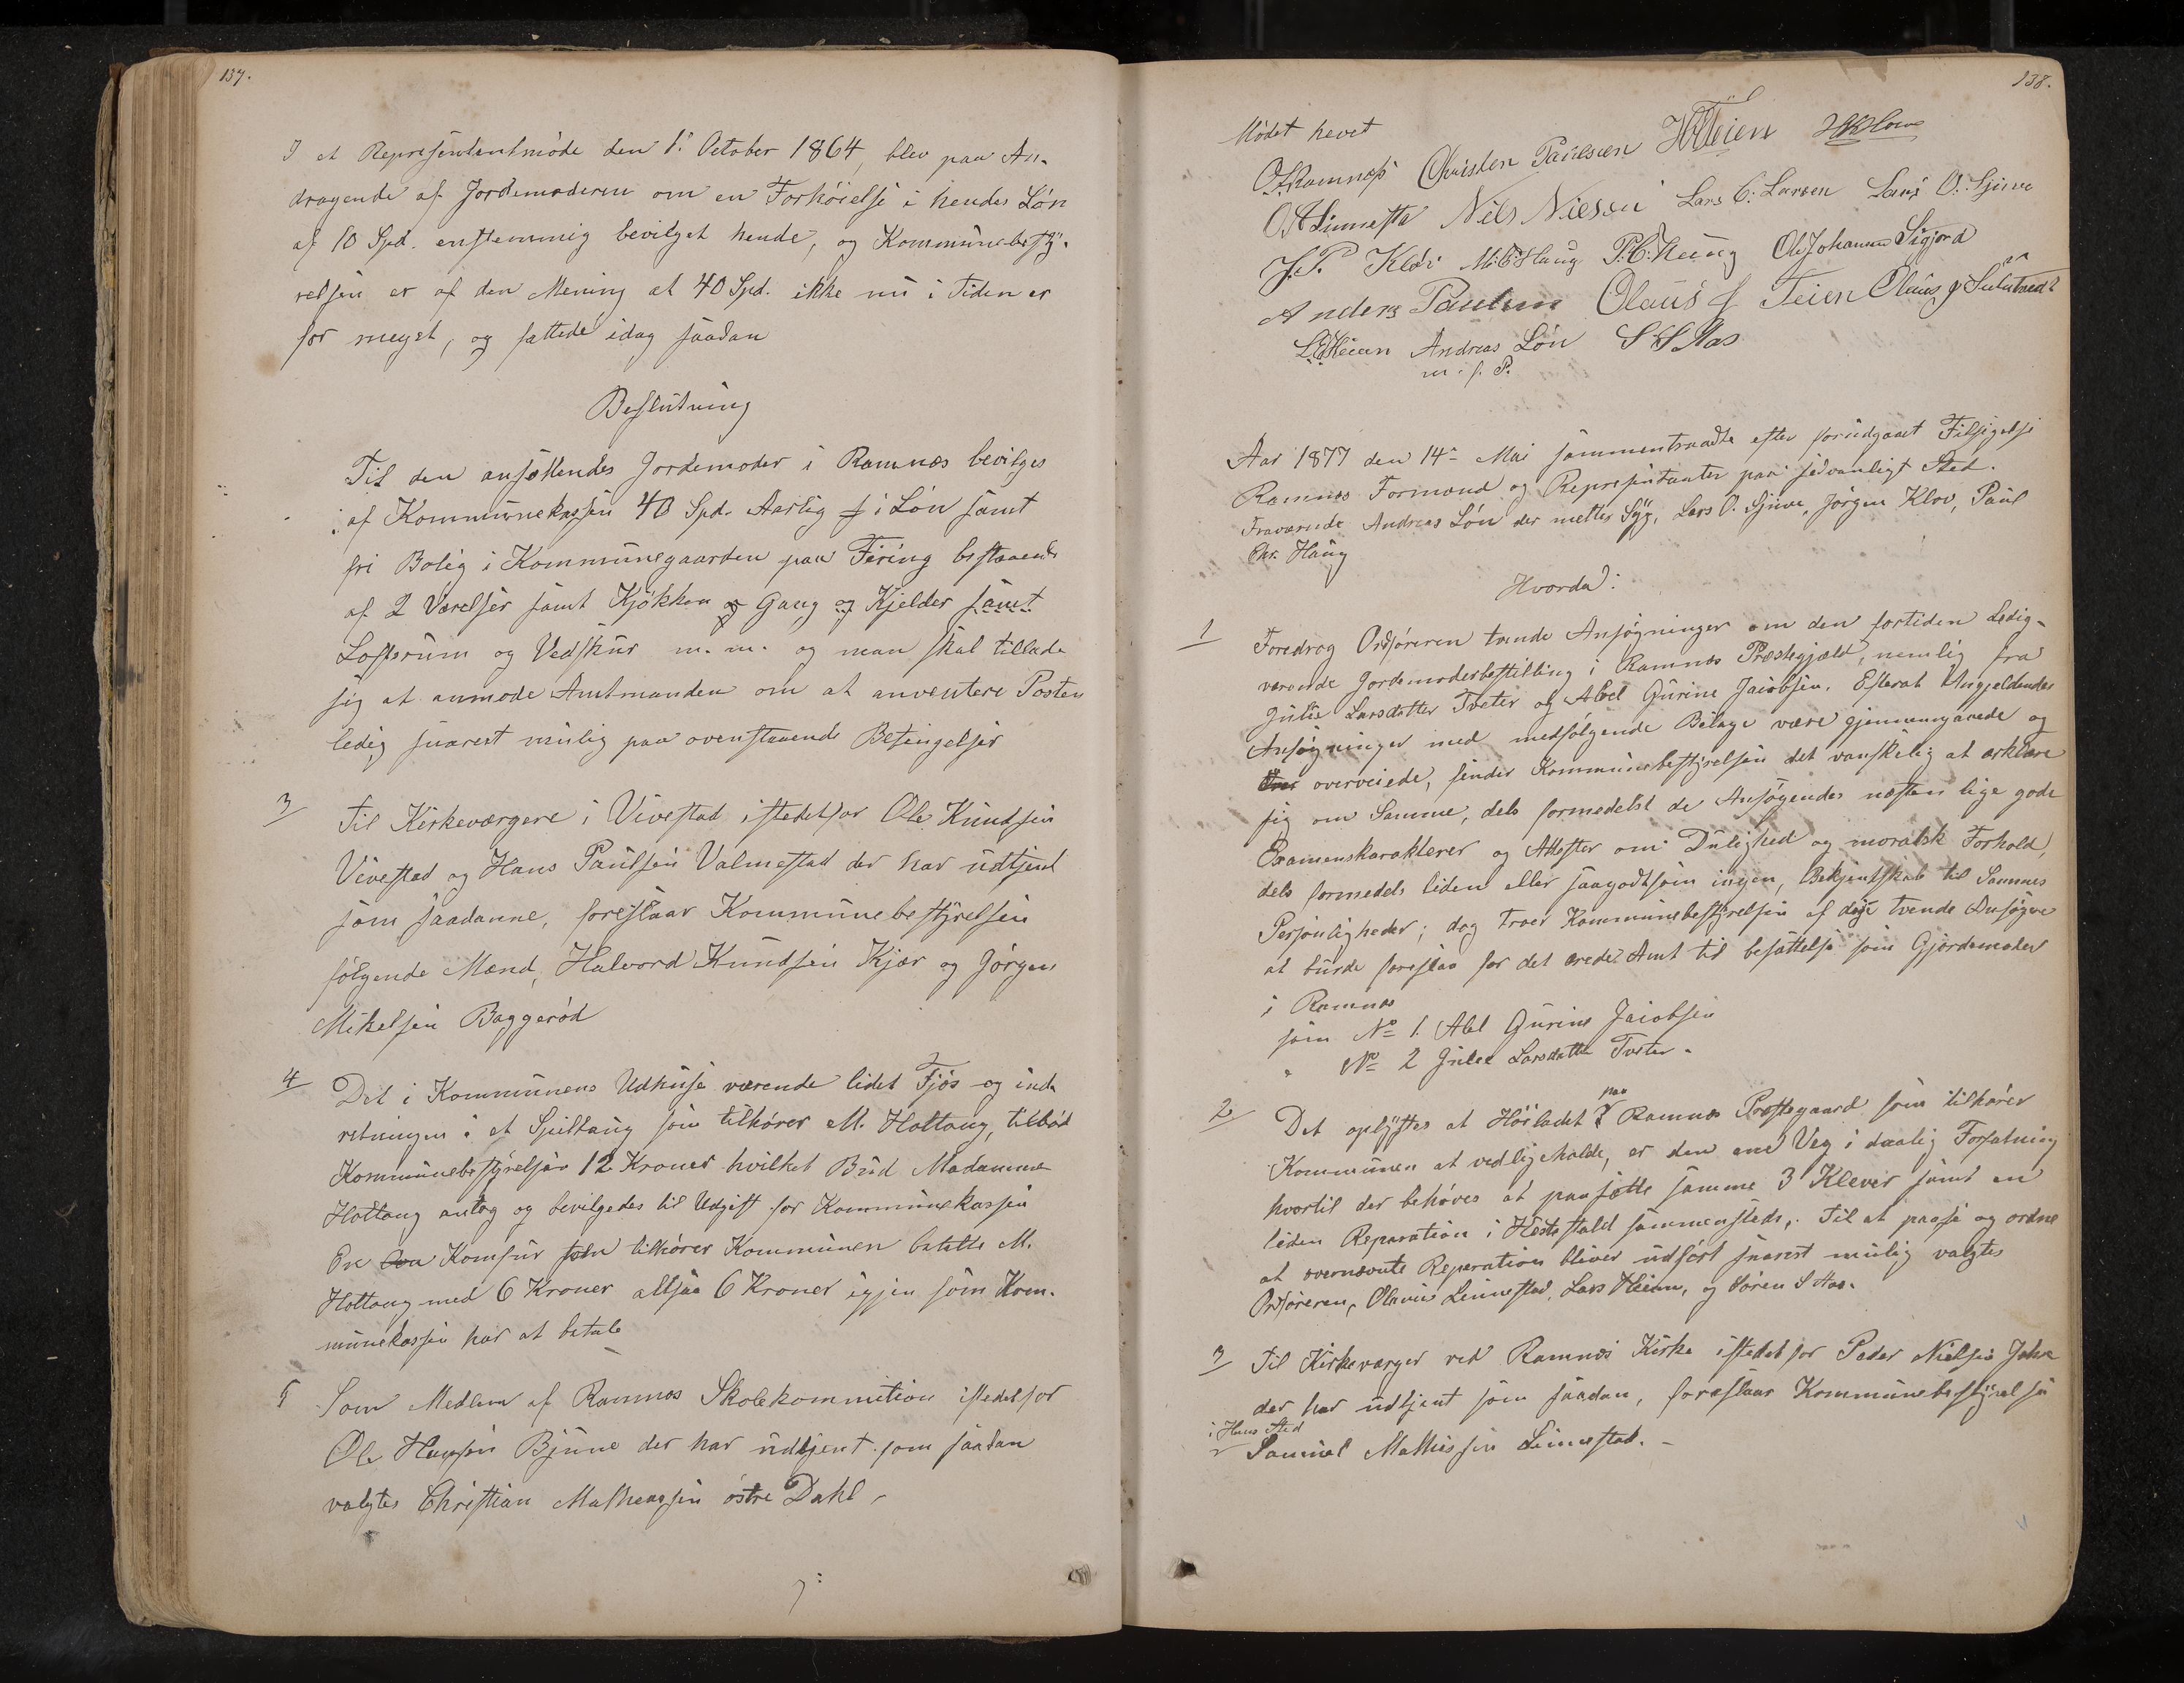 137.
I et Repræsentantmöde den 1ste October 1864, blev paa An-
dragende af Jordemoderen om en Forhöielse i hendes Lön
af 10 Spd. enstemmig bevilget hende, og Kommunebesty-
relsen er af den Mening at 40 Spd. ikke nu i Tiden er
for meget, og fattede idag saadan
Beslutning
Til den ansættendes Jordemoder i Ramnæs bevilges
af Kommunekassen 40 Spd. Aarlig i Lön samt
fri Bolig i Kommunegaarden paa Fæing bestaaende
af 2 Værelser samt Kjökken og Gang og Kjelder samt
Lofterum og Vedskur m. m. og man skal tillade
sig at anmode Amtmanden om at anventere Posten
ledig snarest mulig paa ovenstaaende Betingelser
3 Til Kirkeværgere i Vivestad istedetfor Ole Knudsen
Vivestad og Hans Paulsen Valmestad der har udtjent
som saadanne, foreslaar Kommunebestyrelsen
fölgende Mænd, Halvord Knudsen Kjær og Jörgen
Mikelsen Baggeröd
4 Det i Kommunens Udhuse værende lidet Fjös og ind-
retningen i et Spiltaug som tilhörer M. Hottang, tilböd
Kommunebestyrelsen 12 Kroner hvilket Bud Madamme
Hottang antog og bevilgedes til Udgift for Kommunekassen
En Komfur som tilhörer Kommunen betalte M.
Hottang med 6 Kroner altsaa 6 Kroner igjen som Kom-
munekassen har at betale
5 Som Medlem af Ramnæs Skolekommition istedetfor
Ole Hansen Bjune der har udtjent som saadan
valgtes Christian Matheassen östre Dahl
138.
Mödet hevet
O. Ramnæs Christen Paulsen H Teien
O A Linnesta Nils Nilsen Lars C. Larsen Lars O. Gjune
J. P. Klöv M. C. Haug P. C. Haug Ole Johannes Sigjord
Anders Paulsen Olaus J Teien Olaus
L. Heian Andreas Lön S S Aas
m. f. P.
Aar 1877 den 14de Mai sammentraadte efter forudgaaet Tilsigelse
Ramnæs Formænd og Repræsentanter paa sedvanligt Sted.
Fraværende Andreas Lön der meltes Syg, Lars O. Gjune, Jörgen Klöv, Paul
Chr. Haug
Hvorda:
1 Foredrog Ordföreren tvende Ansögninger om den fortiden ledig-
værende Jordemoderbestilling i Ramnæs Præstegjæld, nemlig fra
Julie Larsdatter Tveter og Abel Gurine Jacobsen. Efterat Angjeldendes
Ansögninger med medfölgende Bilage være gjennemgaaede og
overveiede, finder Kommunebestyrelsen det vanskelig at erklære
sig om Samme, dels formedelst de Ansögendes næsten lige gode
Examenskarakterer og Attester om Dulighed og moralsk Forhold,
dels formedels liden eller saagodtsom ingen, Bekjentskab til Sammes
Personligheder; dog troer Kommunebestyrelsen af disse tvende Ansögere
at burde foreslaa for det ærede Amt til besættelse som Gjordemoder
i Ramnæs
som No 1. Abel Gurine Jacobsen
" No 2 Julie Larsdatte Tveter.
2 Det oplystes at Höiladet paa Ramnæs Præstegaard som tilhörer
Kommunen at vedligeholde, er den ene Væg i daarlig Forfatning
hvortil der behöves at paasætte samme 3 Klever samt en
liden Reparation i Hestestald sammensteds. Til at paase og ordne
at overnævnte Reparation bliver udfört snarest mulig valgtes
Ordföreren, Olavus Linnestad, Lars Heian, og Sören S Aas.
3 Til Kirkeværger ved Ramnæs Kirke istedetfor Peder Nielsen Jahre
der har udtjent som saadan, foreslaar Kommunebestyrelsen
i Hans Sted
Samuel Mathissen Linnestad.